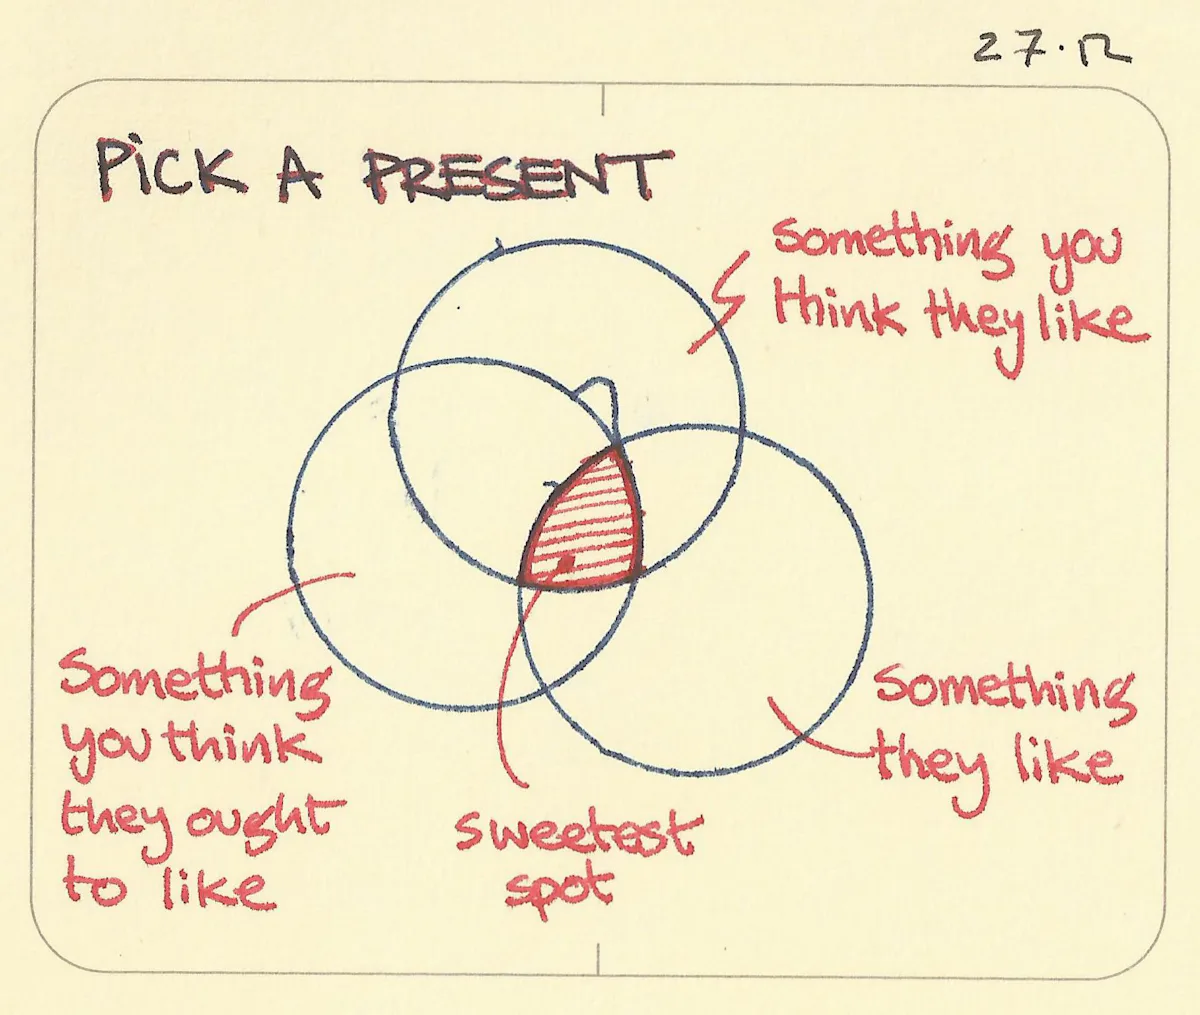 27.12
PICK A PRESENT
Something you
think they like
Something
you think
they ought
to like
sweetest
spot
Something
they like